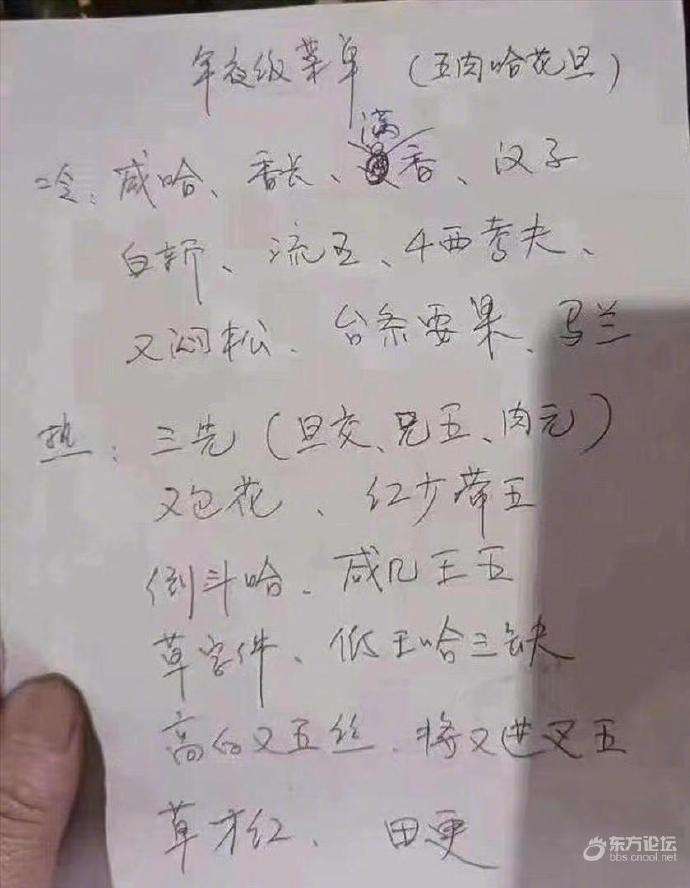 年夜级菜单（五肉哈花旦）
冷：咸哈、香长、满香、汉子
白斩、流五、4西考夫、
又闷松、台条要果、马兰
热：三先（旦交、兄五、肉元）
又包花、红少带五
倒斗哈、咸几王五
草字件、低王哈三缺
高白又五丝、将又进又五
草才红、田更
东方论坛
bbs.cnool.net